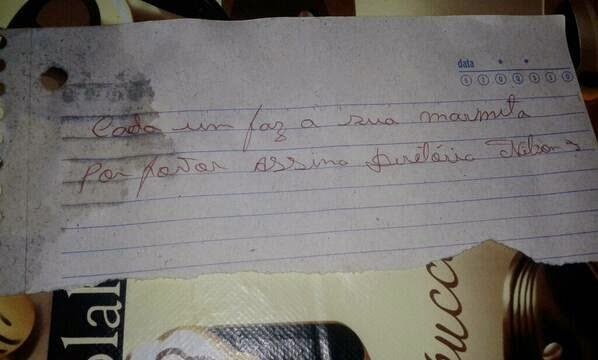 data
D S T Q Q S S
Cada um faz a sua marmita
Por favor Assina Diretória Nilson
olal
ucc